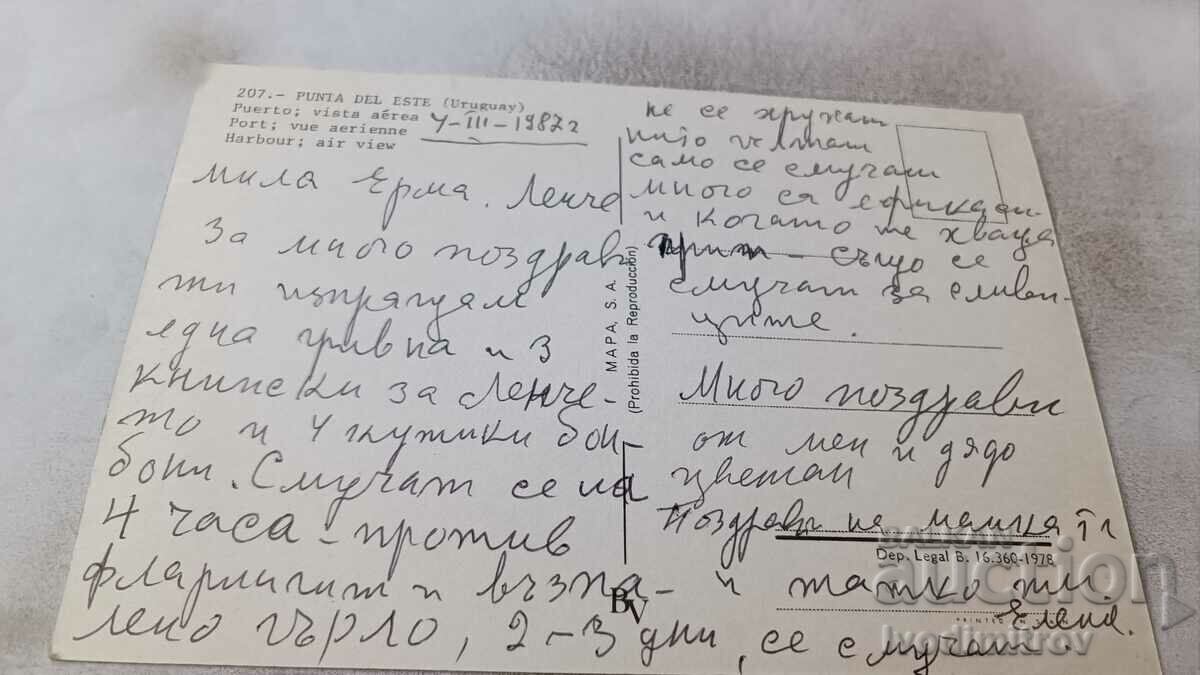 207.- PUNTA DEL ESTE (Uruguay)
Puerto; vista aérea
Port; vue aerienne
Harbour; air view
4-III-1987г
мила Ерма, Ленче
За много поздрави
ти изпращам
една гривна и 3
книжски за Ленче-
то и 4 кутики бон-
бони. Смучат се на
4 часа - против
фларингит и възпа-
лено гърло, 2-3 дни, се смучат.
не се хрускат
нито гълтат
само се смучат
много са ефикасни
и когато те хваща
грип - също се
смучат за сливи-
ците.
Много поздрави
от мен и дядо
Цветан
Поздрави на майка ти
и татко ти.
Елена.
MAPA, S.A.
(Prohibida la Reproducción)
Dep. Legal B. 16.360-1978
PRINTED IN
BV
BALKAN
auction
ivodimitrov